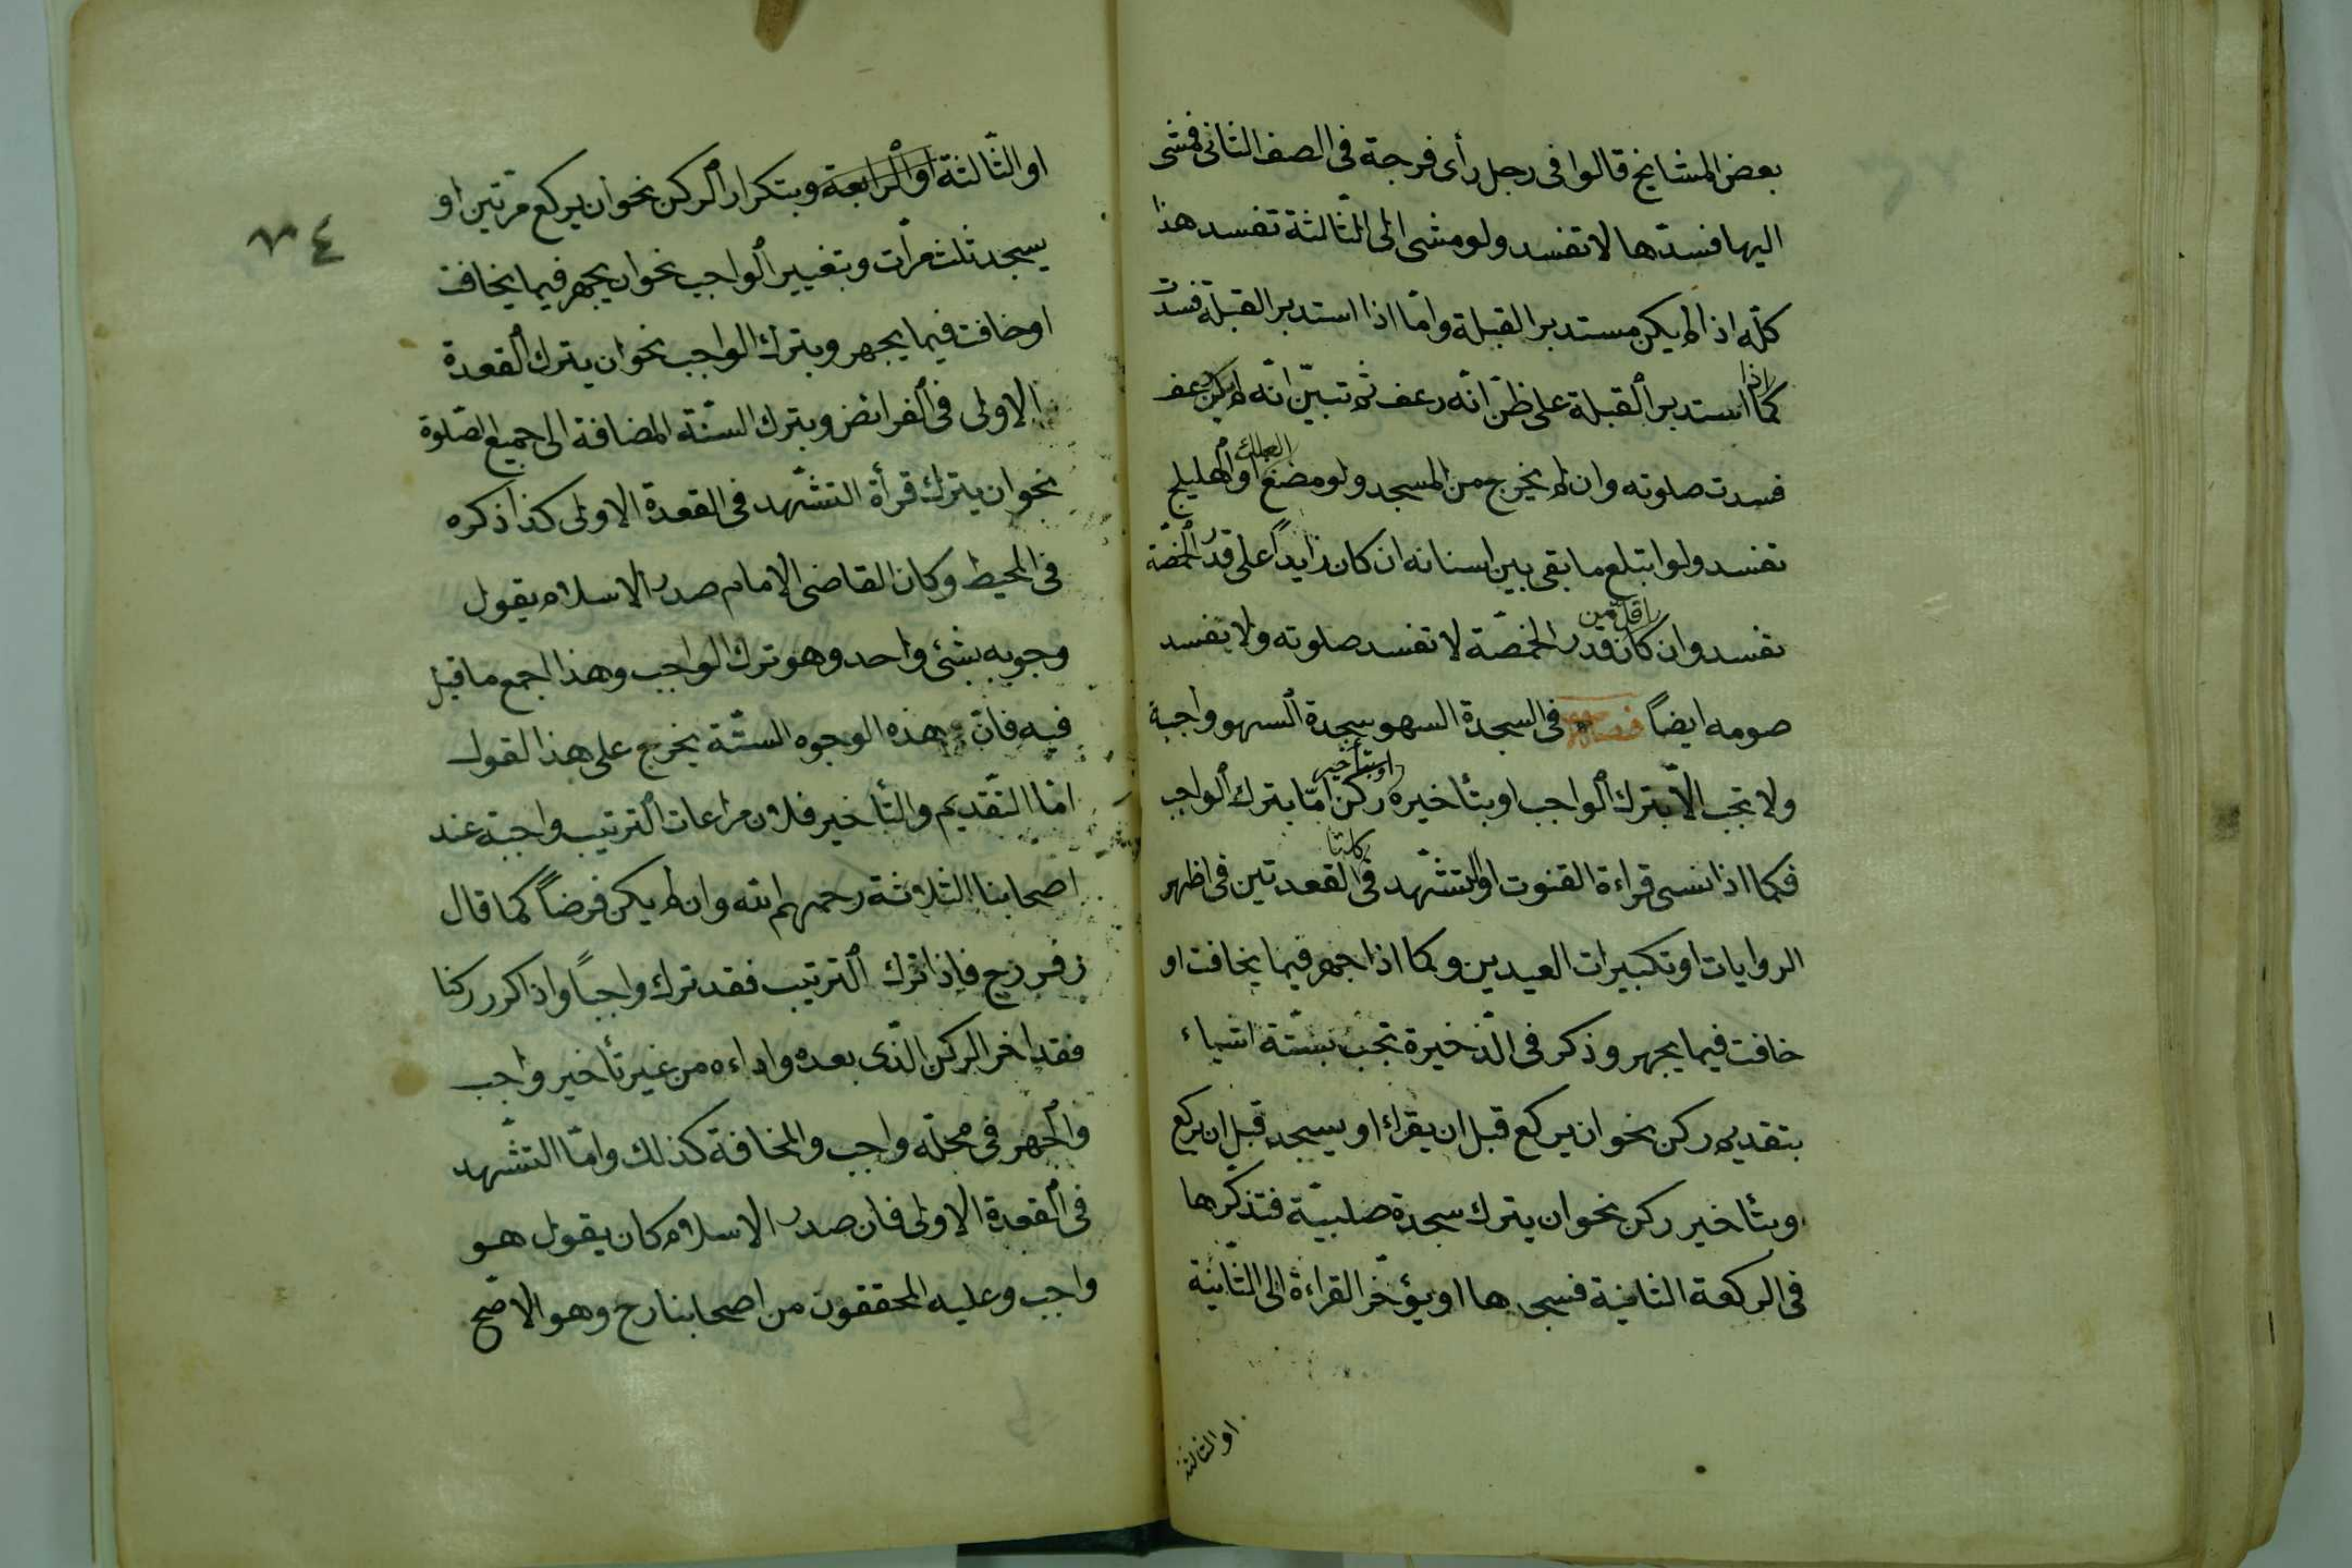 بعض المشايخ قالوا فى رجل رأى فرجة فى الصف الثانى فمشى
اليها فسدّها لا تفسد ولو مشى الى الثّالثة تفسد هذا
كلّه اذا لم يكن مستدبر القبلة وامّا اذا استدبر القبلة فسدت
كما اذا استدبر القبلة على ظنّ انّه رعف ثم تبيّن انّه لم يكن رعف
فسدت صلوته وان لم يخرج من المسجد ولو مضغ العلك او الهليلج
تفسد ولو ابتلع ما بقى بين اسنانه ان كان زايداً على قدر الحمّصة
تفسد وان كان اقلّ من قدر الحمّصة لا تفسد صلوته ولا يفسد
صومه ايضاً فصل فى السجدة السهو سجدة السهو واجبة
ولا تجب الّا بترك الواجب او بتأخيره او بتأخير ركن امّا بترك الواجب
فكما اذا نسى قراءة القنوت او التشّهد فى كلتا القعدتين فى اظهر
الروايات او تكبيرات العيدين وكما اذا جهر فيما يخافت او
خافت فيما يجهر وذكر فى الذّخيرة تجب بستّة اشياء
بتقديم ركن نحو ان يركع قبل ان يقراء او يسجد قبل ان يركع
وبتأخير ركن نحو ان يترك سجدة صلبيّة فتذكّرها
فى الركعة الثانية فسجدها او يؤخّر القراءة الى الثّانية
او الثالثة
٧٤
او الثّالثة او الرابعة وبتكرار الركن نحو ان يركع مرّتين او
يسجد ثلث مرّات وبتغيير الواجب نحو ان يجهر فيما يخافت
او خافت فيما يجهر وبترك الواجب نحو ان يترك القعدة
الاولى فى الفرائض وبترك السنّة المضافة الى جميع الصّلوة
نحو ان يترك قرأة التشّهد فى القعدة الاولى كذا ذكره
فى المحيط وكان القاضى الامام صدر الاسلام يقول
وجوبه بشئ واحد وهو ترك الواجب وهذا اجمع ما قيل
فيه فانّ هذه الوجوه الستّة يخرج على هذا القول
امّا التقّديم والتأخير فلان مراعات الترتيب واجبة عند
اصحابنا الثلاثة رحمهم الله وان لم يكن فرضاً كما قال
زفر رح فاذا ترك الترتيب فقد ترك واجباً واذا كرر ركنا
فقد اخر الركن الذّى بعده واداءه من غير تأخير واجب
والجهر فى محلّه واجب والمخافة كذلك وامّا التشّهد
فى القعدة الاولى فان صدر الاسلام كان يقول هو
واجب وعليه المحققون من اصحابنا رح وهو الاصّح